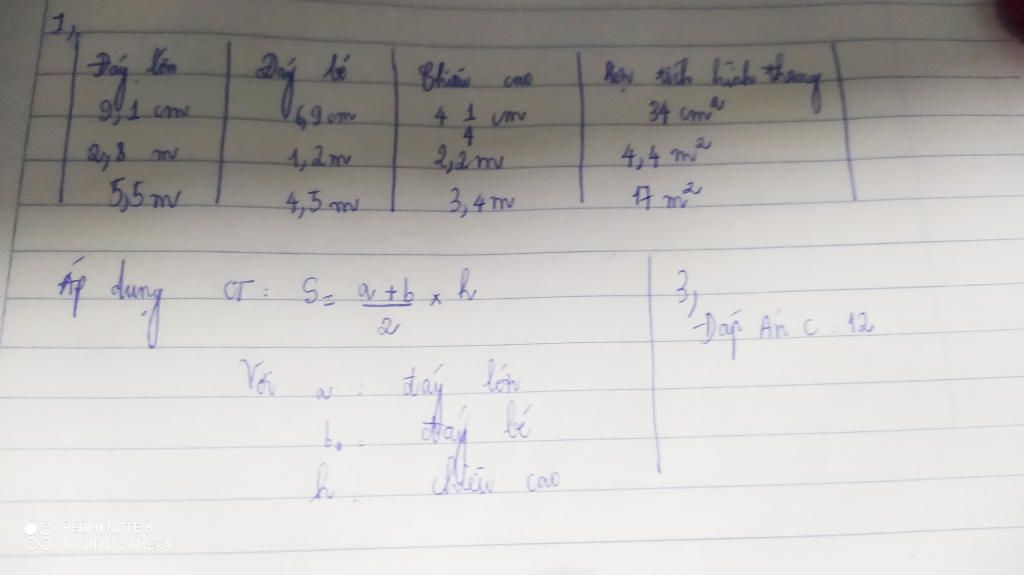 1,
Đáy lớn Đáy bé Chiều cao tích hình thang
9,1 cm 6,9 cm 4 1/4 cm 34 cm²
2,8 m 1,2 m 2,2 m 4,4 m²
5,5 m 4,5 m 3,4 m 17 m²
Áp dụng CT: S = a + b / 2 × h
3,
Đáp Án C : 12
Với a : đáy lớn
b : đáy bé
h : chiều cao
REDMI NOTE 8
AI QUAD CAMERA